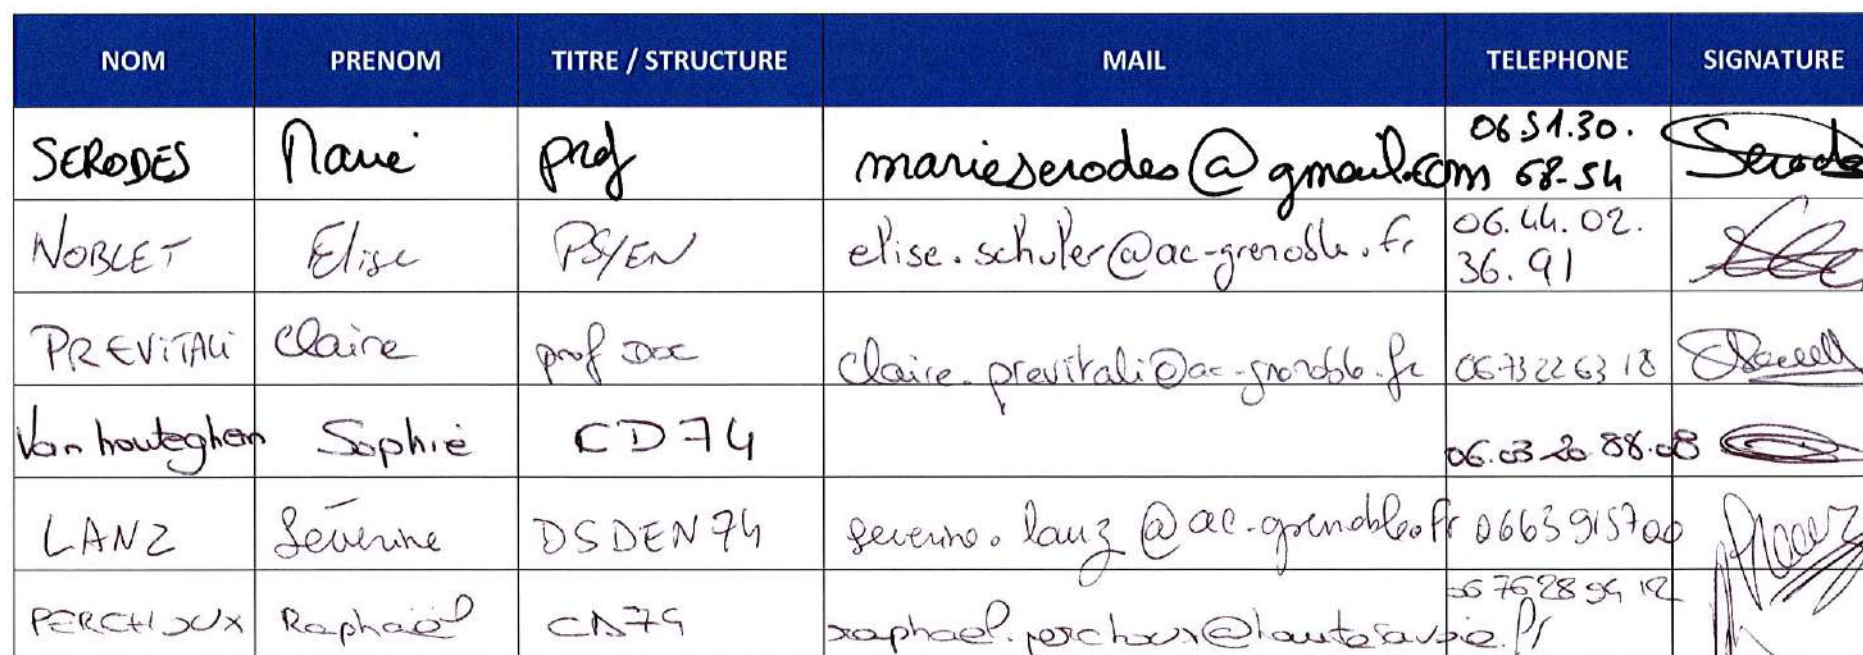 NOM PRENOM TITRE / STRUCTURE MAIL TELEPHONE SIGNATURE
SERODES Marie prof marieserodes@gmail.com 06.51.30. Serodes
68-54
NOBLET Elise PSYEN elise.schuler@ac-grenoble.fr 06.44.02.
36.91
PREVITALI Claire prof Doc claire.previtali@ac-grenoble.fr 06 73 22 63 18
Vanhouteghem Sophie CD74 06.03.20.88.08
LANZ Séverine DSDEN74 severine.lanz@ac-grenoble.fr 0663915700
PERCHOUX Raphaël CD74 raphael.perchoux@hautesavoie.fr 06 76 28 94 12